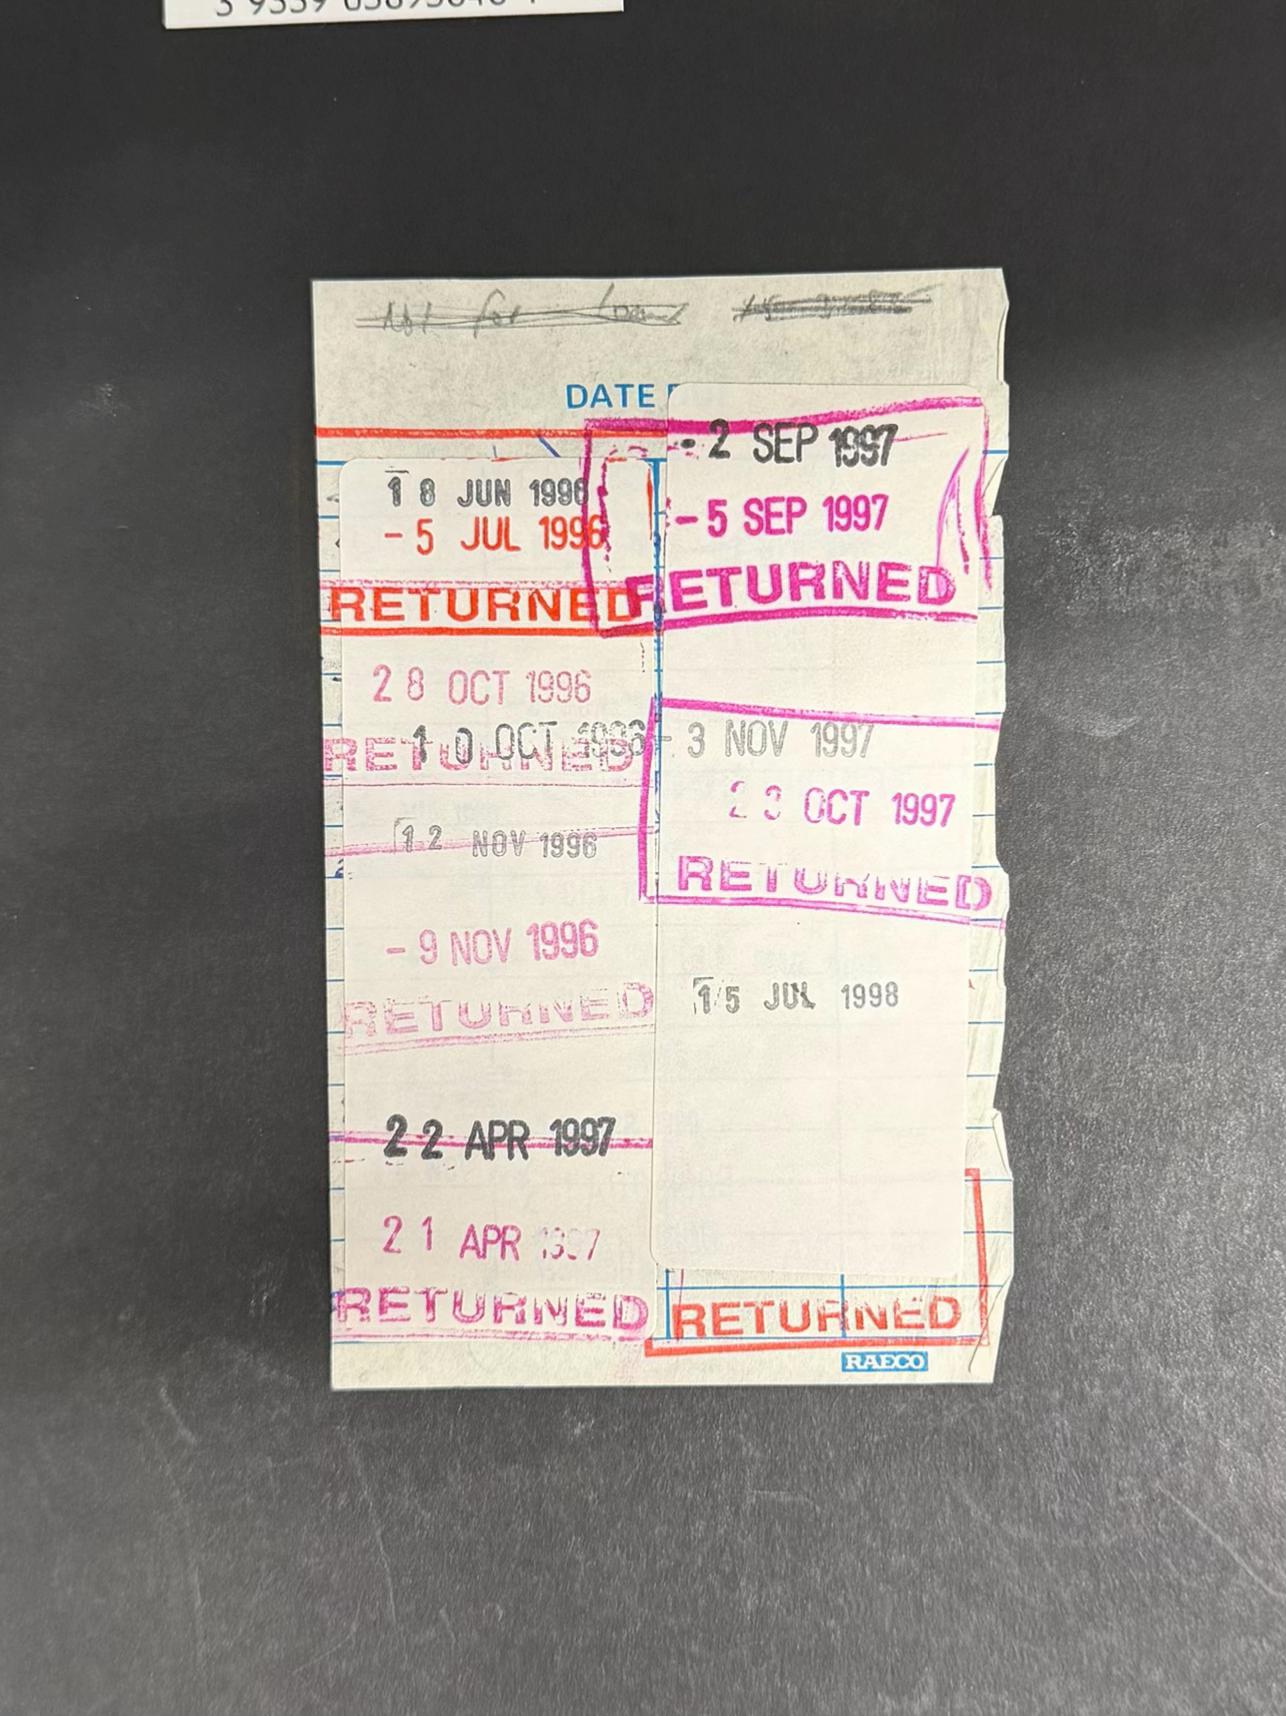 Not for Loan
DATE
18 JUN 1996
- 5 JUL 1996
RETURNED
28 OCT 1996
10 OCT 1996
RETURNED
12 NOV 1996
- 9 NOV 1996
RETURNED
22 APR 1997
21 APR 1997
RETURNED
- 2 SEP 1997
- 5 SEP 1997
RETURNED
- 3 NOV 1997
23 OCT 1997
RETURNED
15 JUL 1998
RETURNED
RAECO